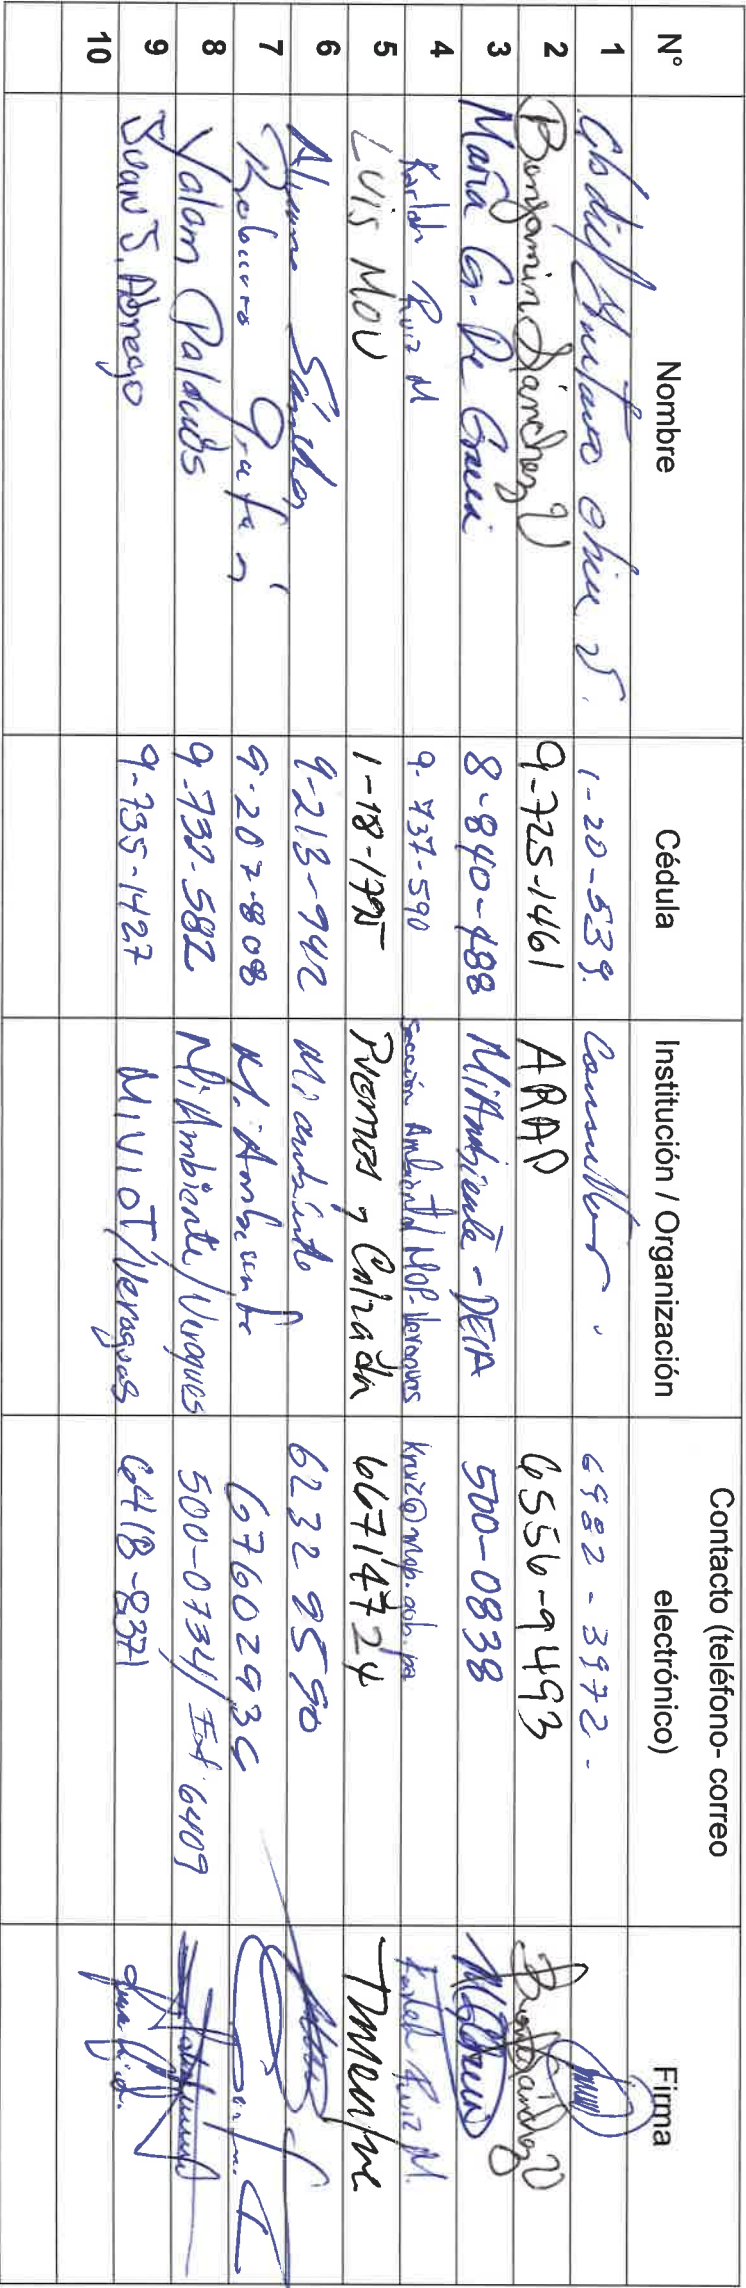 N° Nombre Cédula Institución / Organización Contacto (teléfono- correo electrónico) Firma
1 1-20-539. Consultor. 6982-3972-
2 Benjamin Sánchez V 9-725-1461 ARAP 6556-9493 Sánchez V
3 Maria G. De Gracia 8-840-488 MiAmbiente - DEIA 500-0838
4 Karleh Ruiz M 9-737-590 Sección Ambiental MOP-Veraguas kruiz@mop.gob.pa Karleh Ruiz M.
5 LUIS MOU 1-18-1795 Puentes y Calzada 66714724
6 Sánchez 9-213-942 Mi ambiente 6232 9590
7 9-207-808 Mi Ambiente 67602936
8 Yalam Palacios 9-732-582 Mi Ambiente/Veraguas 500-0734/ Ext 6409
9 Juan J. Abrego 9-735-1427 MIVIOT/Veraguas 6418-8371
10